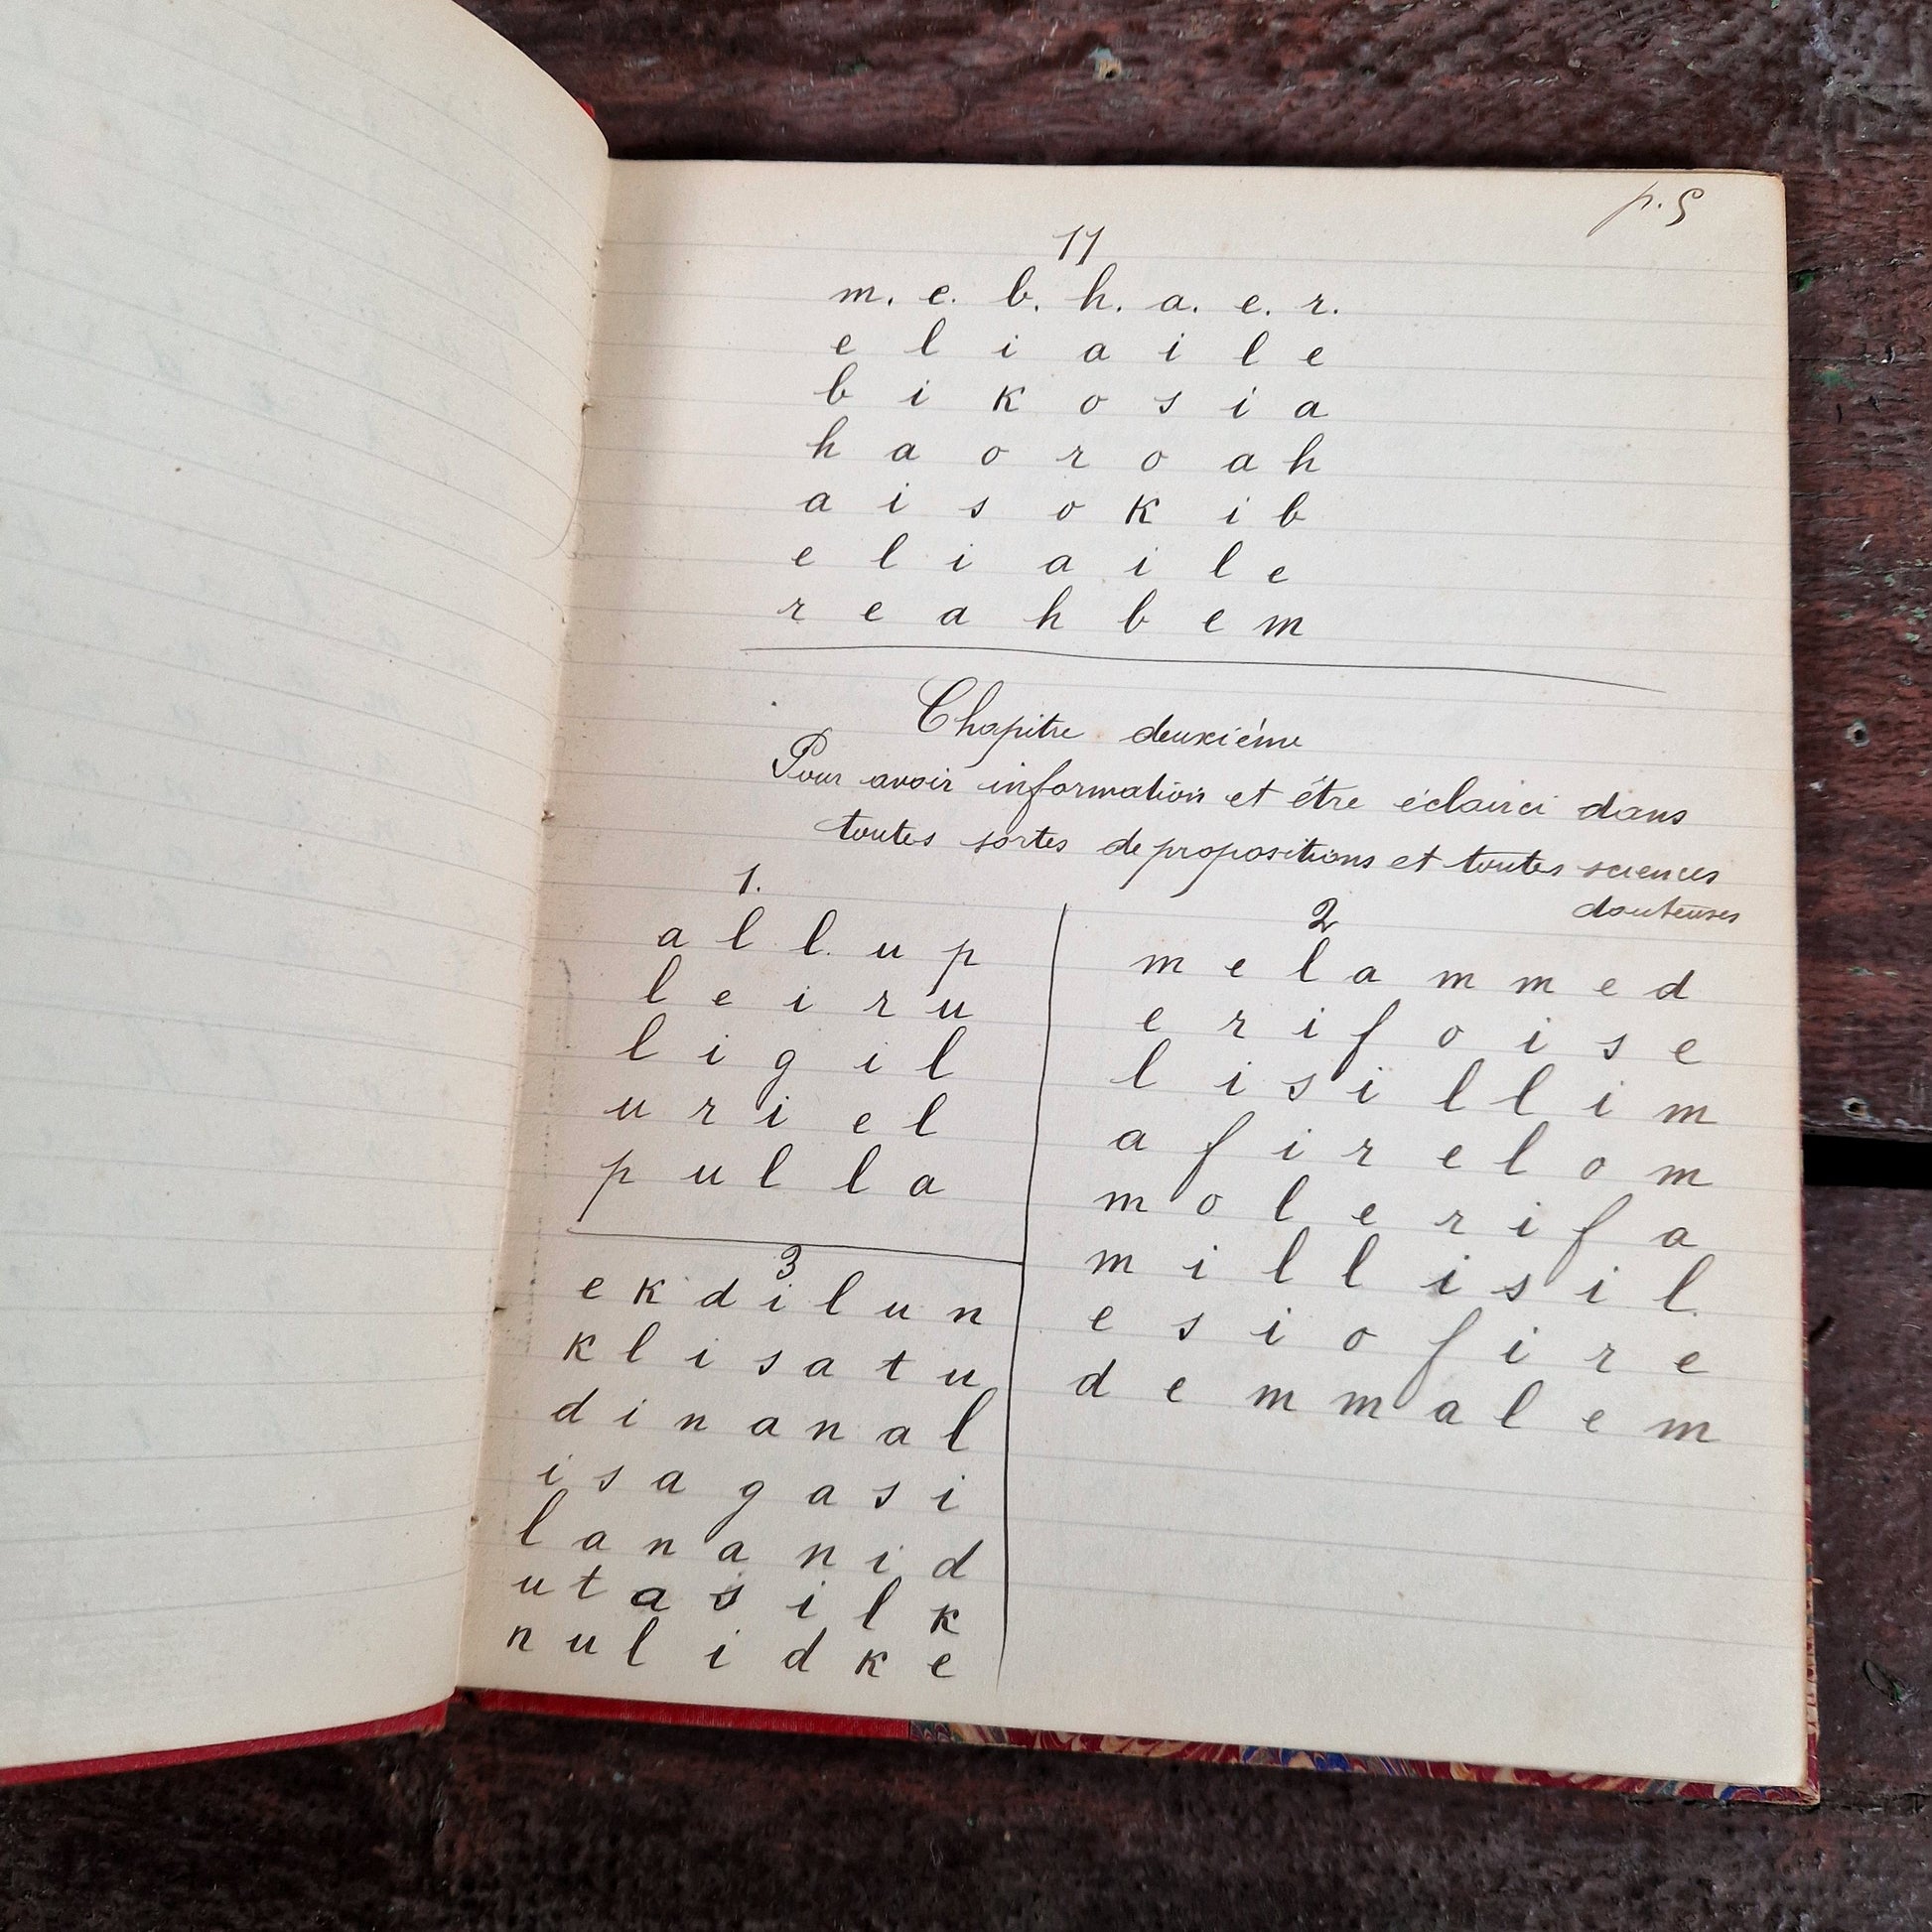 p. 5
11
m. e. b. h. a. e. r.
e l i a i l e
b i k o s i a
h a o r o a h
a i s o k i b
e l i a i l e
r e a h b e m
Chapitre deuxième
Pour avoir information et être éclairci dans
toutes sortes de propositions et toutes sciences
douteuses
1.
a l l u p
l e i r u
l i g i l
u r i e l
p u l l a
2
m e l a m m e d
e r i f o i s e
l i s i l l i m
a f i r e l o m
m o l e r i f a
m i l l i s i l
e s i o f i r e
d e m m a l e m
3
e k d i l u n
k l i s a t u
d i n a n a l
i s a g a s i
l a n a n i d
u t a s i l k
n u l i d k e